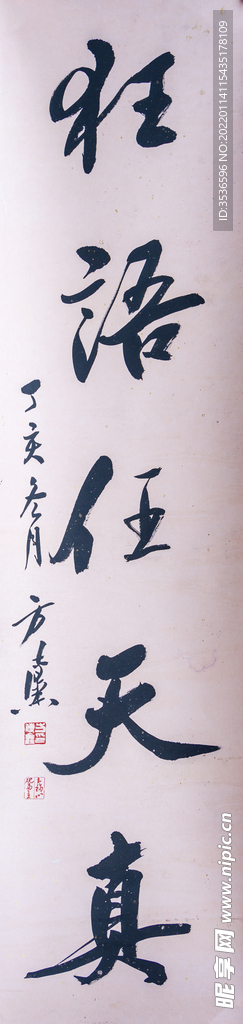 狂語任天真
丁亥冬月 方
ID:3536596 NO:20220114115435178109
昵享网 www.nipic.cn